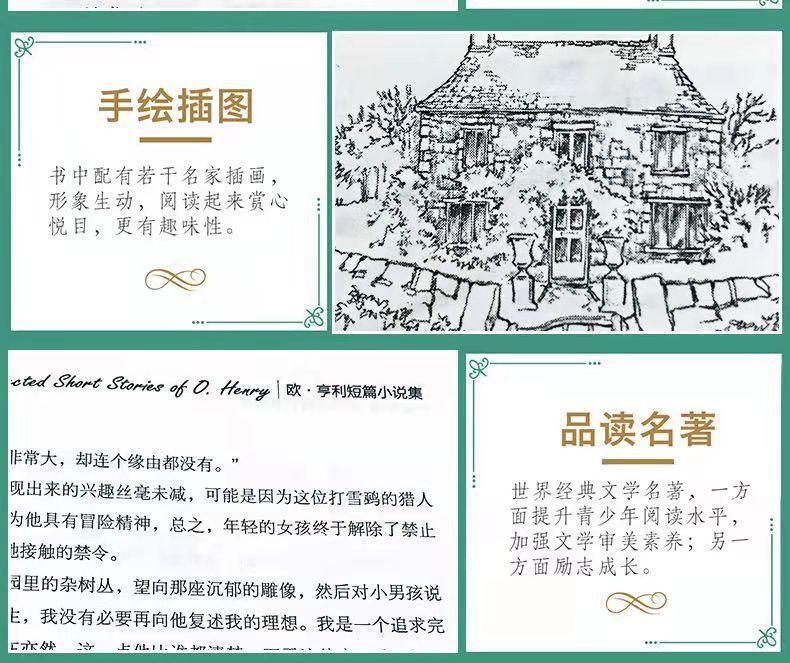 手绘插图
书中配有若干名家插画，
形象生动，阅读起来赏心
悦目，更有趣味性。
cted Short Stories of O. Henry | 欧·亨利短篇小说集
非常大，却连个缘由都没有。”
现出来的兴趣丝毫未减，可能是因为这位打雪鹀的猎人
为他具有冒险精神，总之，年轻的女孩终于解除了禁止
他接触的禁令。
园里的杂树丛，望向那座沉郁的雕像，然后对小男孩说
生，我没有必要再向他复述我的理想。我是一个追求完
品读名著
世界经典文学名著，一方
面提升青少年阅读水平，
加强文学审美素养；另一
方面励志成长。